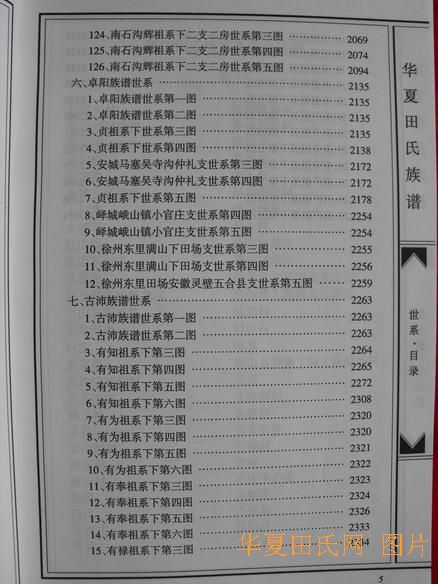 124、南石沟辉祖系下二支二房世系第三图 ………… 2069
125、南石沟辉祖系下二支二房世系第四图 ………… 2074
126、南石沟辉祖系下二支二房世系第五图 ………… 2094
六、卓阳族谱世系 ………… 2135
1、卓阳族谱世系第一图 ………… 2135
2、卓阳族谱世系第二图 ………… 2135
3、贞祖系下世系第三图 ………… 2135
4、贞祖系下世系第四图 ………… 2138
5、安城马塞吴寺沟仲礼支世系第三图 ………… 2172
6、安城马塞吴寺沟仲礼支世系第四图 ………… 2172
7、贞祖系下世系第五图 ………… 2178
8、峄城峨山镇小官庄支世系第四图 ………… 2254
9、峄城峨山镇小官庄支世系第五图 ………… 2254
10、徐州东里满山下田场支世系第三图 ………… 2255
11、徐州东里满山下田场支世系第四图 ………… 2256
12、徐州东里田场安徽灵壁五合县支世系第五图 ………… 2259
七、古沛族谱世系 ………… 2263
1、古沛族谱世系第一图 ………… 2263
2、古沛族谱世系第二图 ………… 2263
3、有知祖系下第三图 ………… 2264
4、有知祖系下第四图 ………… 2265
5、有知祖系下第五图 ………… 2272
6、有知祖系下第六图 ………… 2308
7、有为祖系下第三图 ………… 2320
8、有为祖系下第四图 ………… 2320
9、有为祖系下第五图 ………… 2321
10、有为祖系下第六图 ………… 2322
11、有奉祖系下第三图 ………… 2323
12、有奉祖系下第四图 ………… 2324
13、有奉祖系下第五图 ………… 2326
14、有奉祖系下第六图 ………… 2333
15、有禄祖系下第三图 ………… 2334
华夏田氏族谱
世系·目录
5
华夏田氏网 图片